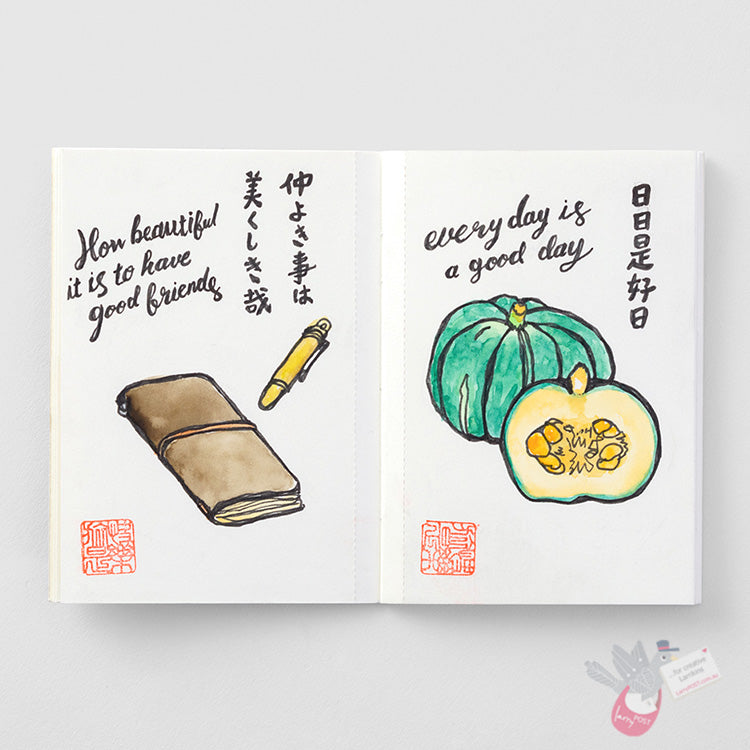 How beautiful
it is to have
good friends
仲よき事は
美くしき哉
every day is
a good day
日日是好日
...for creative
Larrikins!
LarryPOST.com.au
larry
POST